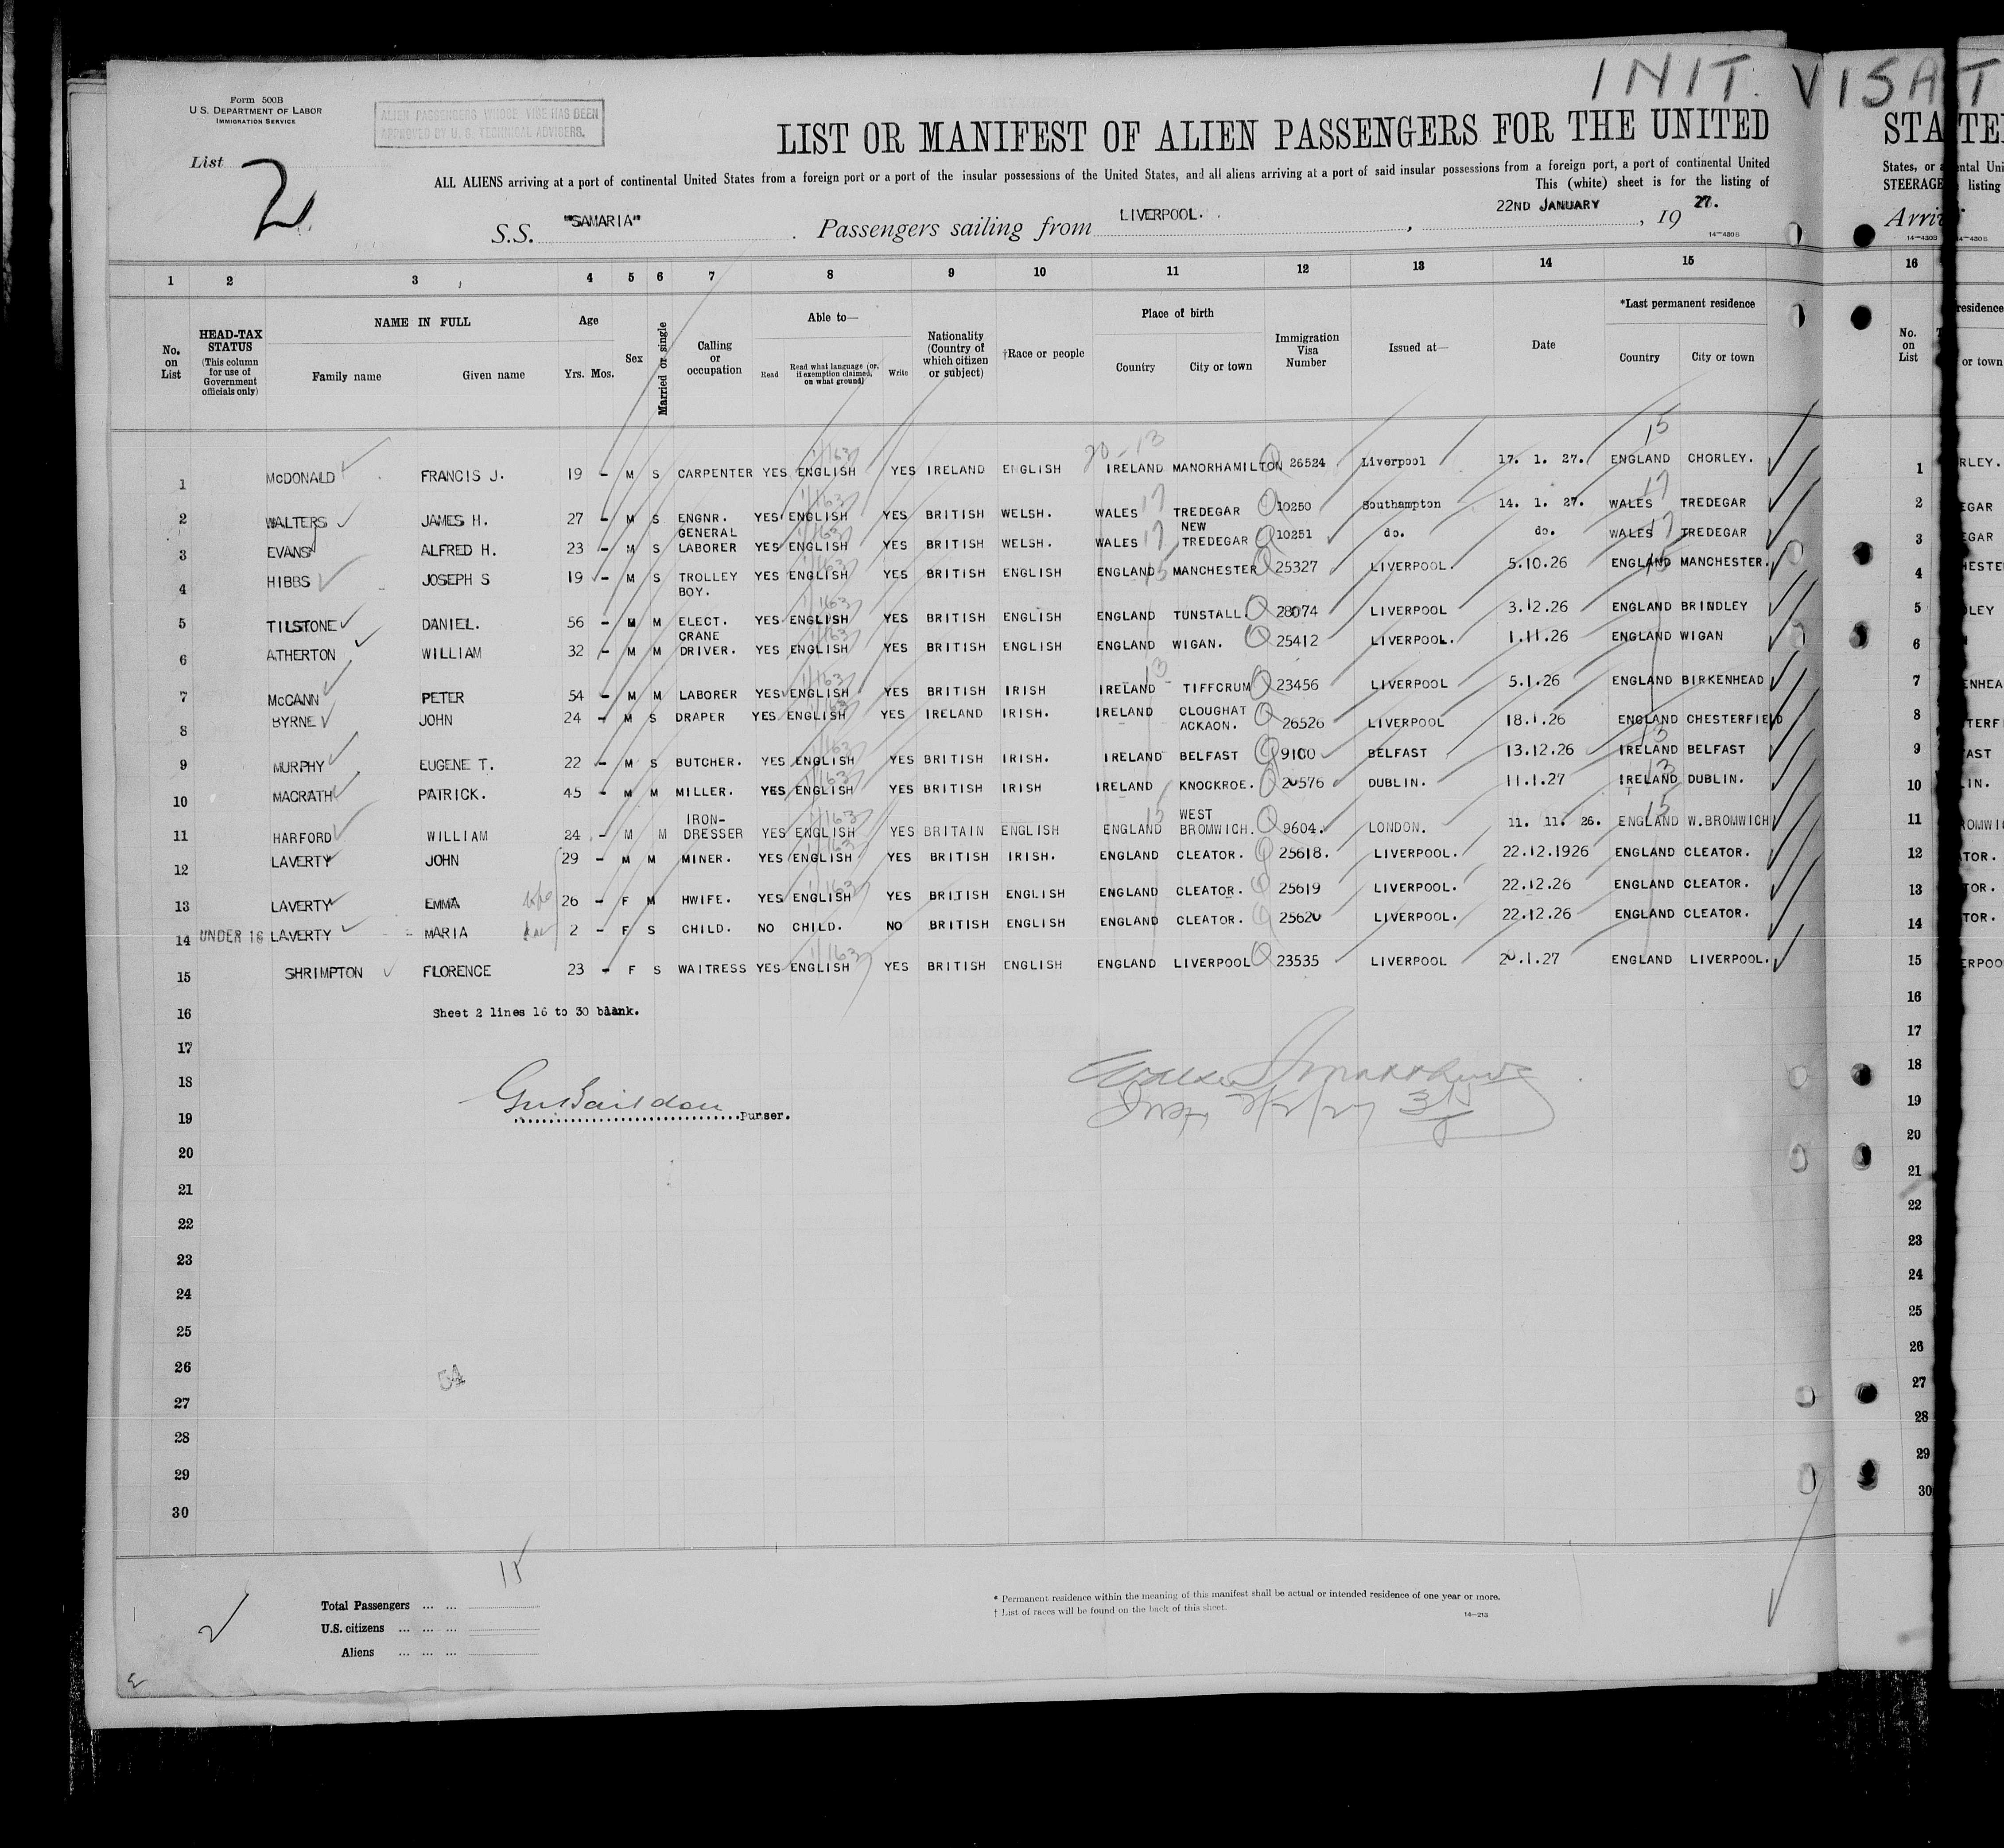 INIT. VISA T
Form 500B
U.S. DEPARTMENT OF LABOR
IMMIGRATION SERVICE
ALIEN PASSENGERS WHOSE VISE HAS BEEN
APPROVED BY U. S. TECHNICAL ADVISERS.
List 2
LIST OR MANIFEST OF ALIEN PASSENGERS FOR THE UNITED
ALL ALIENS arriving at a port of continental United States from a foreign port or a port of the insular possessions of the United States, and all aliens arriving at a port of said insular possessions from a foreign port, a port of continental United
This (white) sheet is for the listing of
S.S. "SAMARIA" Passengers sailing from LIVERPOOL. , 22ND JANUARY , 19 27.
14-430B
STA TE
States, or a ental Uni
STEERAGE listing
Arri
14-430B 14-430B
1 2 3 4 5 6 7 8 9 10 11 12 13 14 15 16
No. on List
HEAD-TAX STATUS (This column for use of Government officials only)
NAME IN FULL
Family name Given name
Age
Yrs. Mos.
Sex
Married or single
Calling or occupation
Able to—
Read Read what language (or, if exemption claimed, on what ground) Write
Nationality (Country of which citizen or subject)
†Race or people
Place of birth
Country City or town
Immigration Visa Number
Issued at—
Date
*Last permanent residence
Country City or town
No. on List
esidence
or town
1 McDONALD FRANCIS J. 19 - M S CARPENTER YES ENGLISH YES IRELAND ENGLISH IRELAND MANORHAMILTON 26524 Liverpool 17. 1. 27. ENGLAND CHORLEY. 1 RLEY.
2 WALTERS JAMES H. 27 - M S ENGNR. YES ENGLISH YES BRITISH WELSH. WALES TREDEGAR 10250 Southampton 14. 1. 27. WALES TREDEGAR 2 EGAR
3 EVANS ALFRED H. 23 - M S GENERAL LABORER YES ENGLISH YES BRITISH WELSH. WALES NEW TREDEGAR 10251 do. do. WALES TREDEGAR 3 EGAR
4 HIBBS JOSEPH S 19 - M S TROLLEY BOY. YES ENGLISH YES BRITISH ENGLISH ENGLAND MANCHESTER 25327 LIVERPOOL. 5.10.26 ENGLAND MANCHESTER. 4 HESTE
5 TILSTONE DANIEL. 56 - M M ELECT. YES ENGLISH YES BRITISH ENGLISH ENGLAND TUNSTALL. 28074 LIVERPOOL 3.12.26 ENGLAND BRINDLEY 5 DLEY
6 ATHERTON WILLIAM 32 - M M CRANE DRIVER. YES ENGLISH YES BRITISH ENGLISH ENGLAND WIGAN. 25412 LIVERPOOL. 1.11.26 ENGLAND WIGAN 6
7 McCANN PETER 54 - M M LABORER YES ENGLISH YES BRITISH IRISH IRELAND TIFFCRUM 23456 LIVERPOOL 5.1.26 ENGLAND BIRKENHEAD 7 ENHEA
8 BYRNE JOHN 24 - M S DRAPER YES ENGLISH YES IRELAND IRISH. IRELAND CLOUGHAT ACKAON. 26526 LIVERPOOL 18.1.26 ENGLAND CHESTERFIELD 8 TERF
9 MURPHY EUGENE T. 22 - M S BUTCHER. YES ENGLISH YES BRITISH IRISH. IRELAND BELFAST 9100 BELFAST 13.12.26 IRELAND BELFAST 9 AST
10 MACRATH PATRICK. 45 - M M MILLER. YES ENGLISH YES BRITISH IRISH IRELAND KNOCKROE. 20576 DUBLIN. 11.1.27 IRELAND DUBLIN. 10 IN.
11 HARFORD WILLIAM 24 - M M IRON-DRESSER YES ENGLISH YES BRITAIN ENGLISH ENGLAND WEST BROMWICH. 9604. LONDON. 11. 11. 26. ENGLAND W.BROMWICH 11 ROMWI
12 LAVERTY JOHN 29 - M M MINER. YES ENGLISH YES BRITISH IRISH. ENGLAND CLEATOR. 25618. LIVERPOOL. 22.12.1926 ENGLAND CLEATOR. 12 TOR.
13 LAVERTY EMMA 26 - F M HWIFE. YES ENGLISH YES BRITISH ENGLISH ENGLAND CLEATOR. 25619 LIVERPOOL. 22.12.26 ENGLAND CLEATOR. 13 TOR.
14 UNDER 16 LAVERTY MARIA 2 - F S CHILD. NO CHILD. NO BRITISH ENGLISH ENGLAND CLEATOR. 25620 LIVERPOOL. 22.12.26 ENGLAND CLEATOR. 14 TOR.
15 SHRIMPTON FLORENCE 23 - F S WAITRESS YES ENGLISH YES BRITISH ENGLISH ENGLAND LIVERPOOL 23535 LIVERPOOL 20.1.27 ENGLAND LIVERPOOL. 15 ERPOO
16 Sheet 2 lines 16 to 30 blank. 16
17 17
18 18
19 Purser. 19
20 20
21 21
22 22
23 23
24 24
25 25
26 54 26
27 27
28 28
29 29
30 30
15
Total Passengers ... ...
U.S. citizens ... ... ...
Aliens ... ... ...
2
* Permanent residence within the meaning of this manifest shall be actual or intended residence of one year or more.
† List of races will be found on the back of this sheet.
14-213